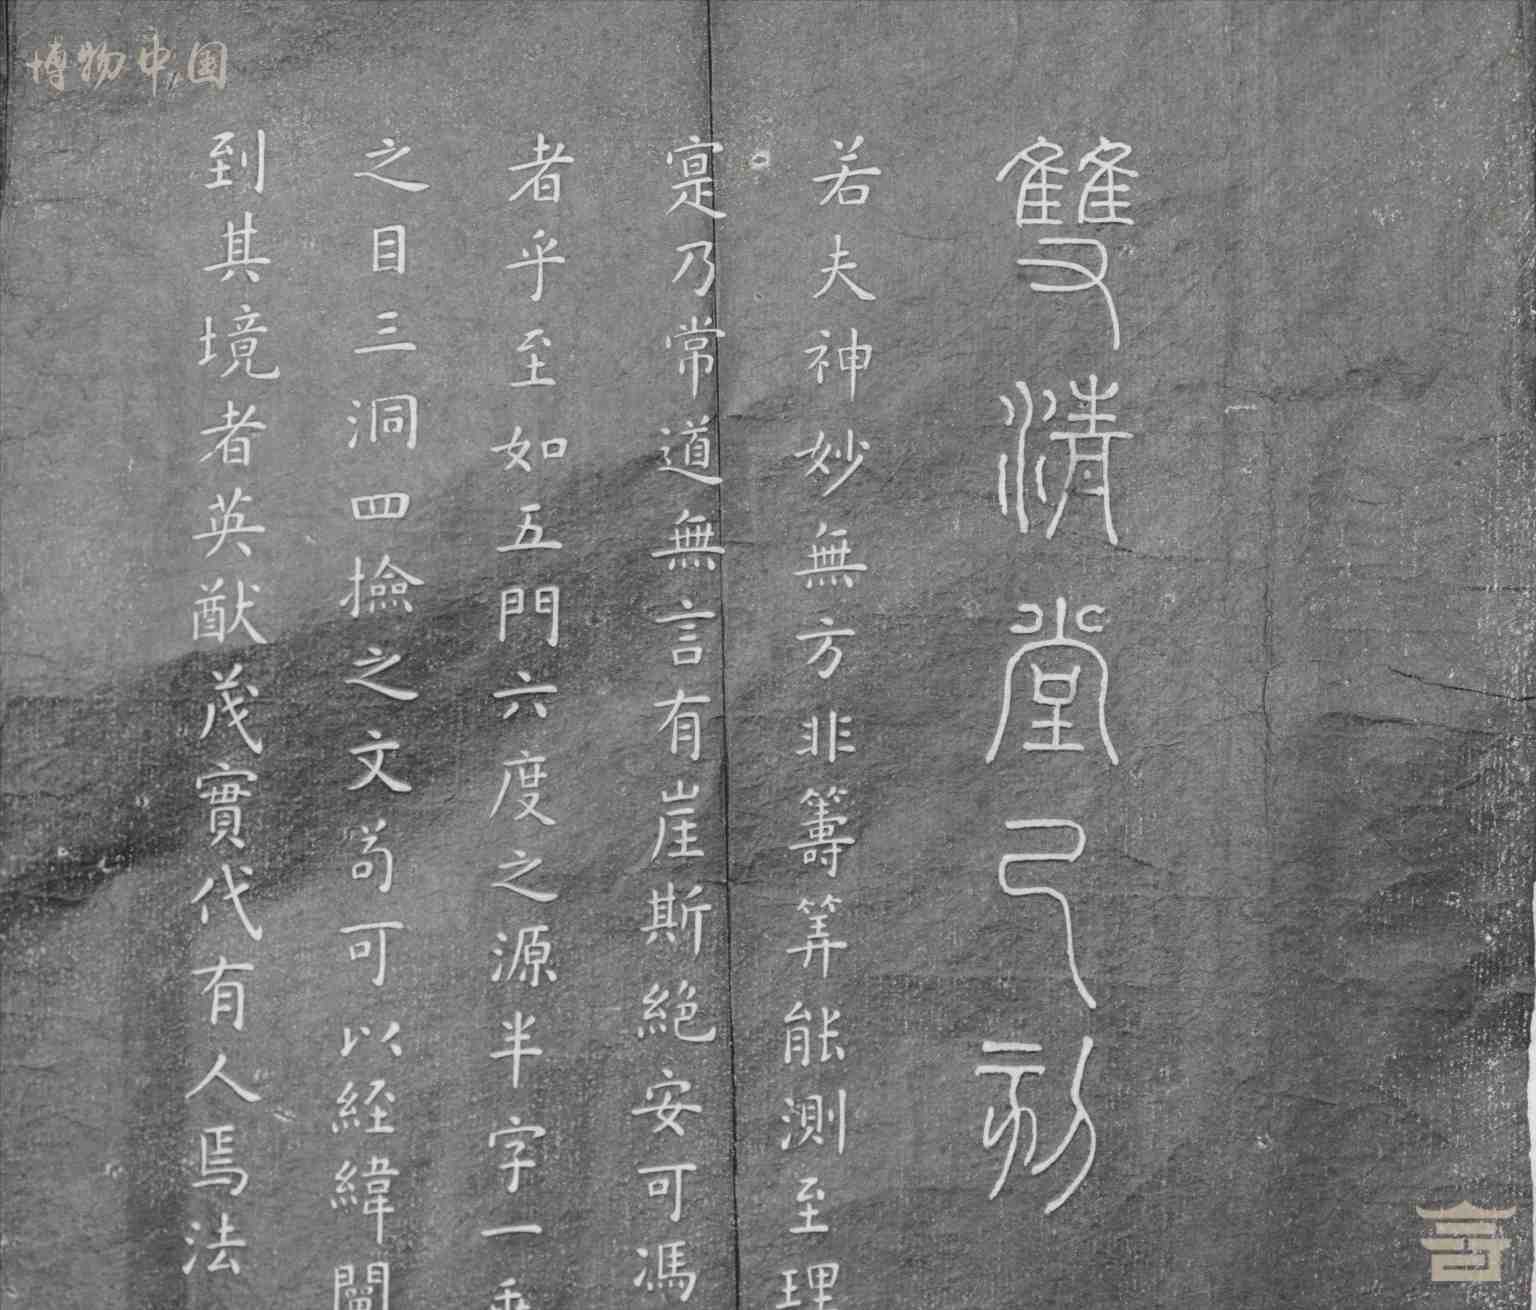 博物中国
雙清堂石刻
若夫神妙無方非籌筭能測至理
寔乃常道無言有崖斯絕安可馮
者乎至如五門六度之源半字一乘
之目三洞四撿之文茍可以經緯闡
到其境者英猷茂實代有人焉法